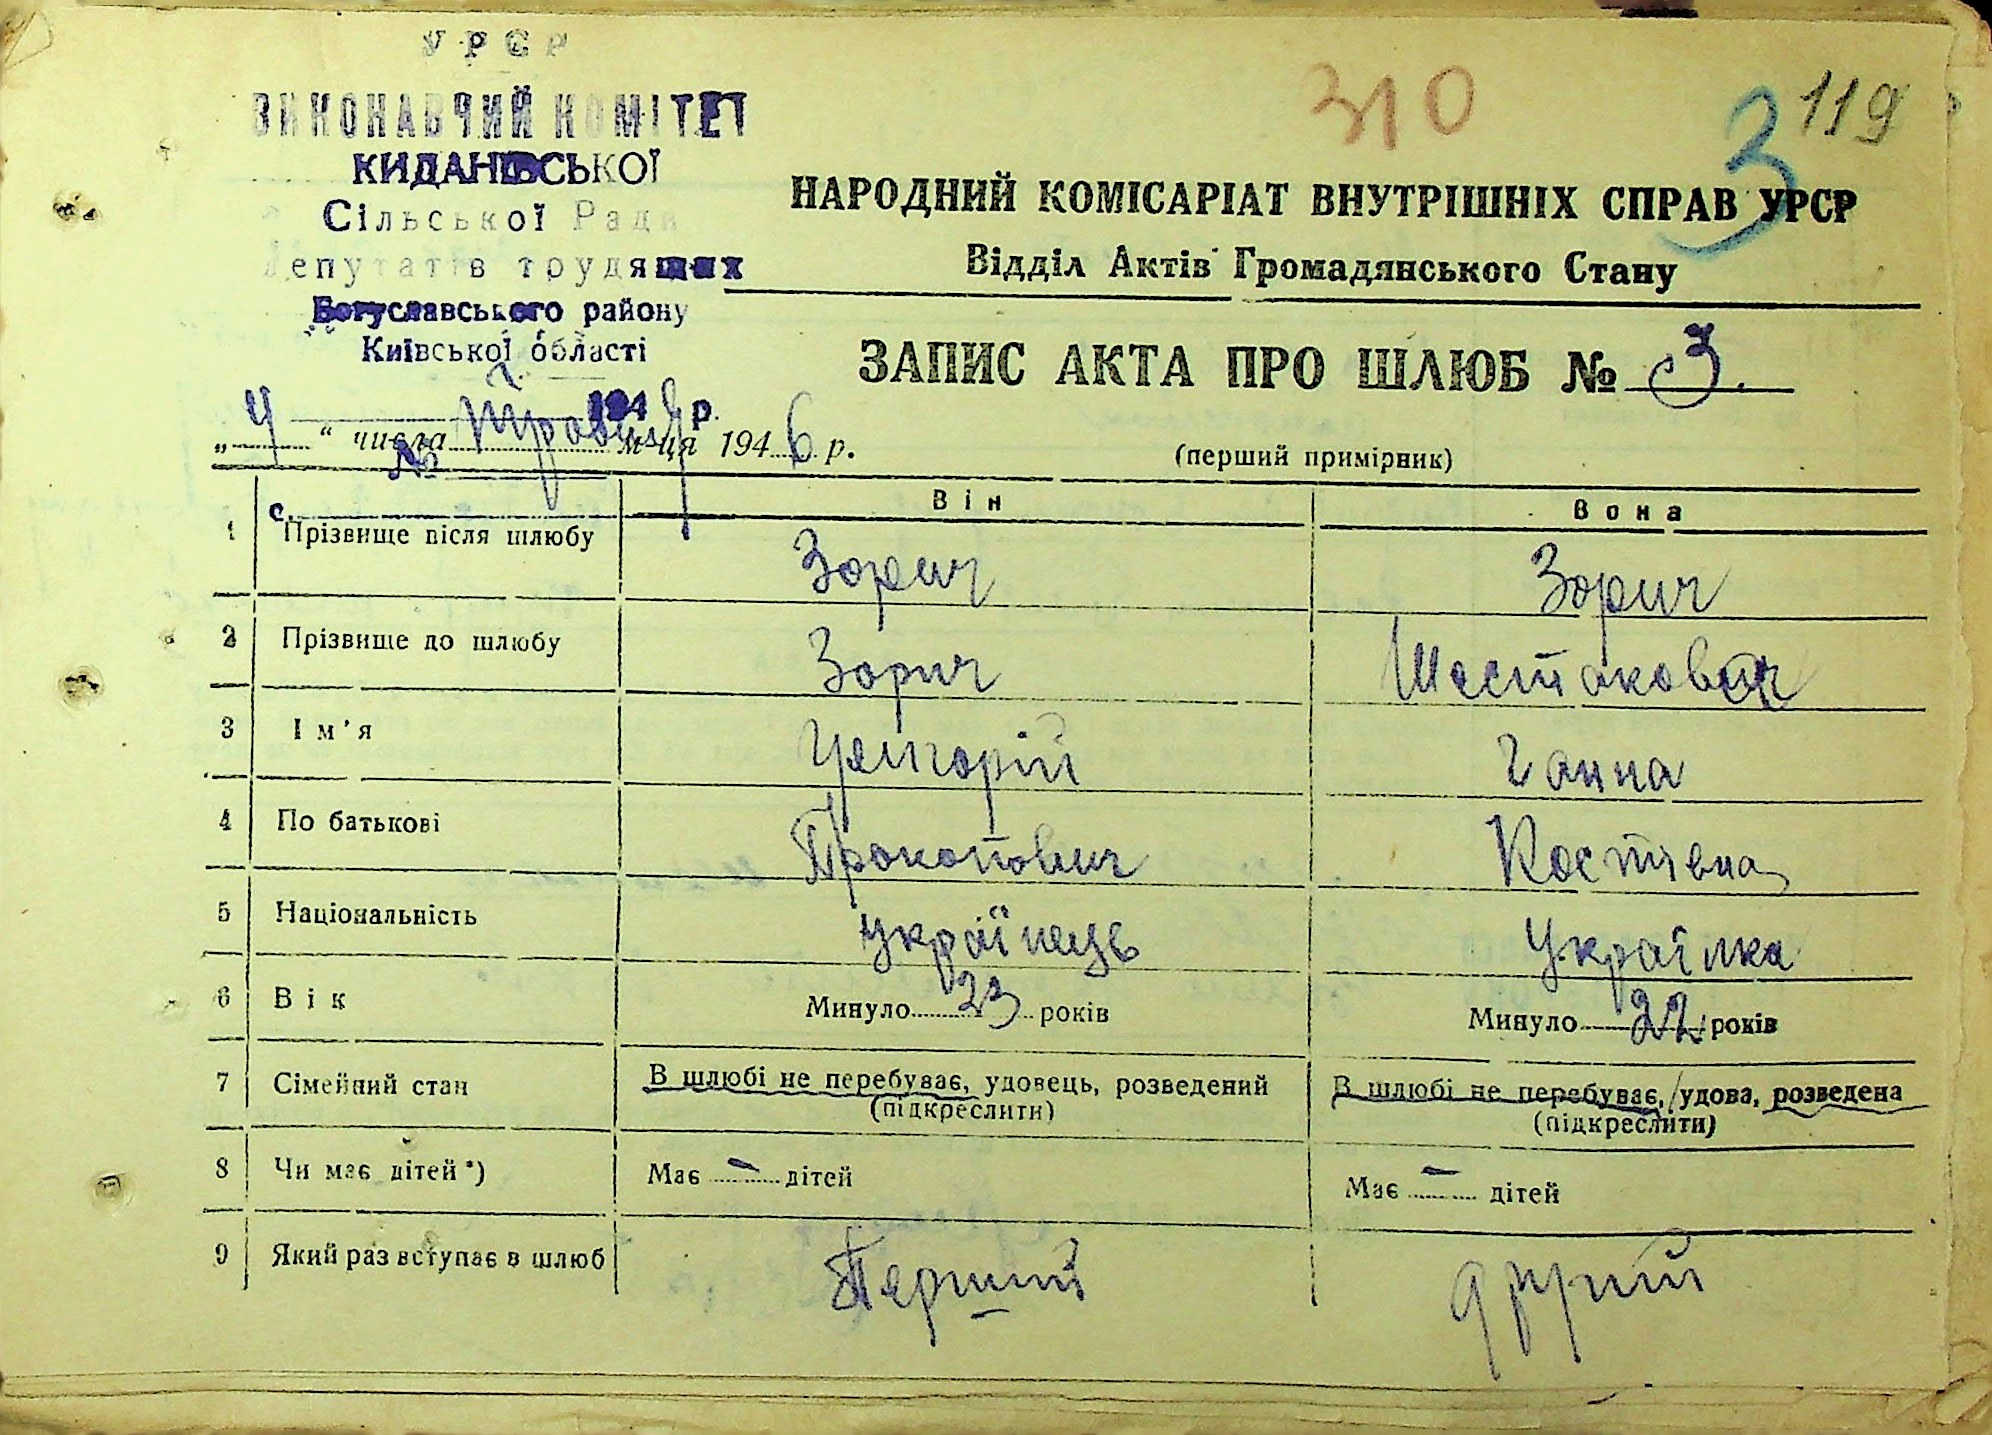 УРСР
ВИКОНАВЧИЙ КОМІТЕТ
КИДАНІВСЬКОЇ
Сільської Ради
Депутатів трудящих
Богуславського району
Київської області
194 р.
№
310
3
119
НАРОДНИЙ КОМІСАРІАТ ВНУТРІШНІХ СПРАВ УРСР
Відділ Актів Громадянського Стану
ЗАПИС АКТА ПРО ШЛЮБ № 3.
„4“ числа Травня м-ця 1946 р.
(перший примірник)
с.
Він Вона
1 Прізвище після шлюбу Зорич Зорич
2 Прізвище до шлюбу Зорич Шестакович
3 Ім'я Григорій Ганна
4 По батькові Прокопович Костівна
5 Національність українець Українка
6 Вік Минуло 23 років Минуло 22 років
7 Сімейний стан В шлюбі не перебуває, удовець, розведений В шлюбі не перебуває, удова, розведена
(підкреслити) (підкреслити)
8 Чи має дітей*) Має – дітей Має – дітей
9 Який раз вступає в шлюб Перший другий